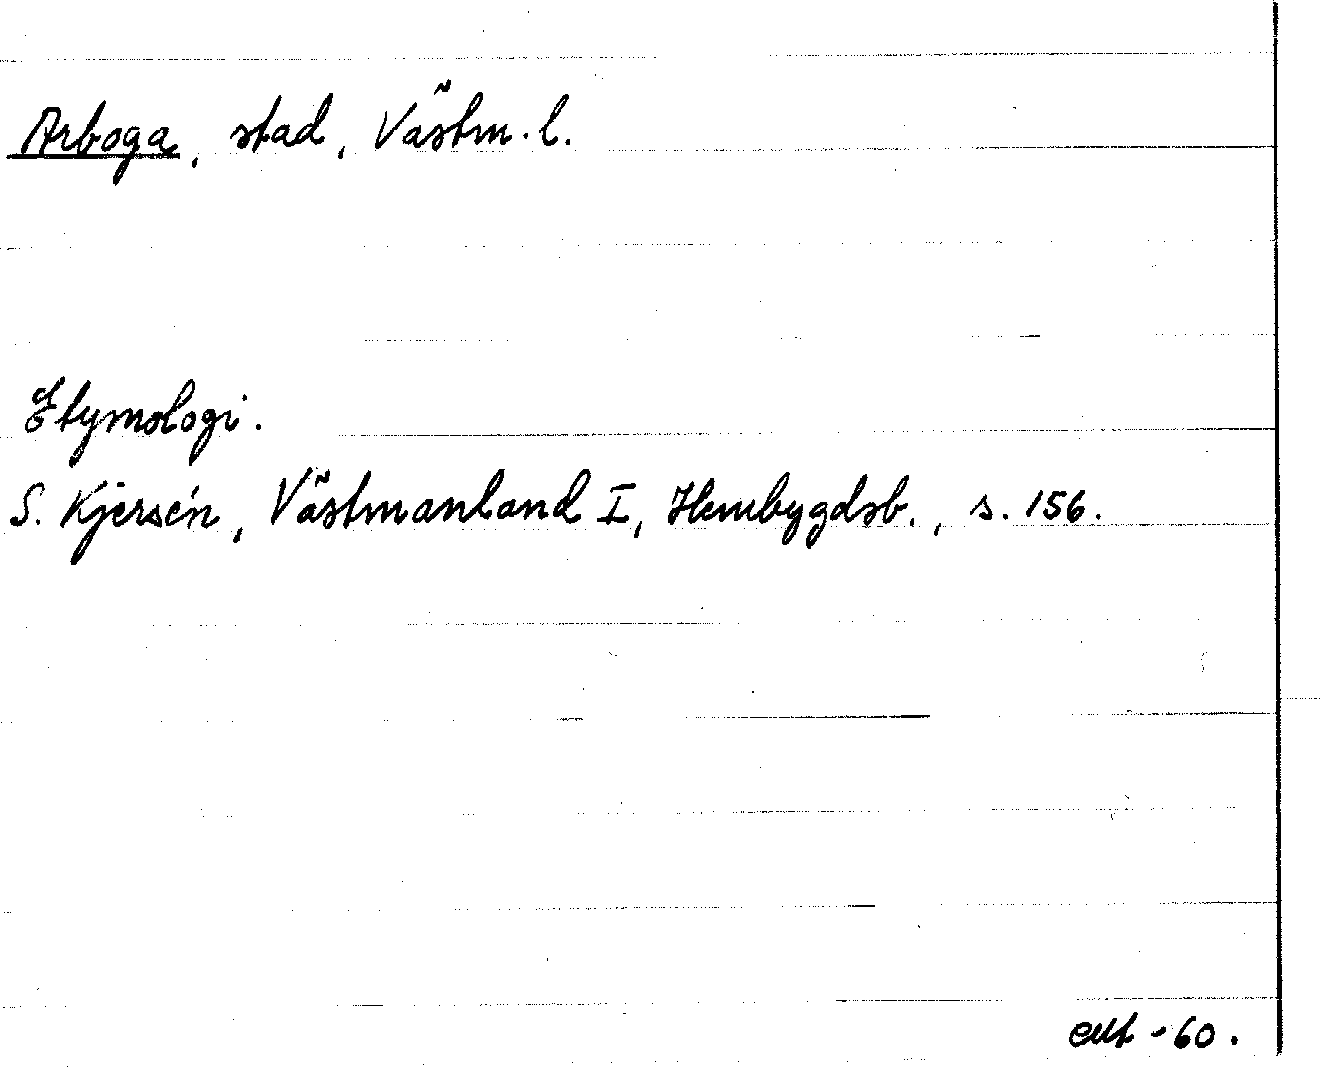 Arboga, stad, Västm. l.
Etymologi.
S. Kjersén, Västmanland I, Hembygdsb., s. 156.
-60.